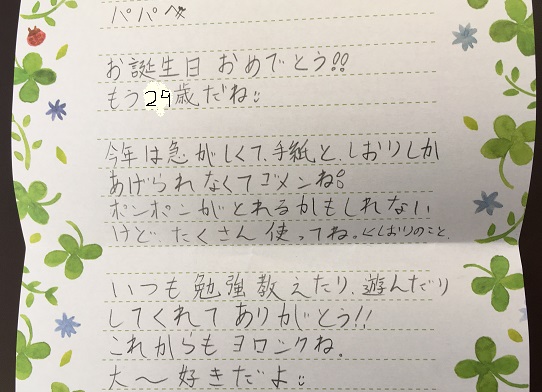 パパへ
お誕生日おめでとう!!
もう29歳だね
今年は急がしくて、手紙と、しおりしか
あげられなくてゴメンね。
ポンポンがとれるかもしれない
けど、たくさん使ってね。←しおりのこと
いつも勉強教えたり、遊んだり
してくれてありがとう!!
これからもヨロシクね。
大〜好きだよ